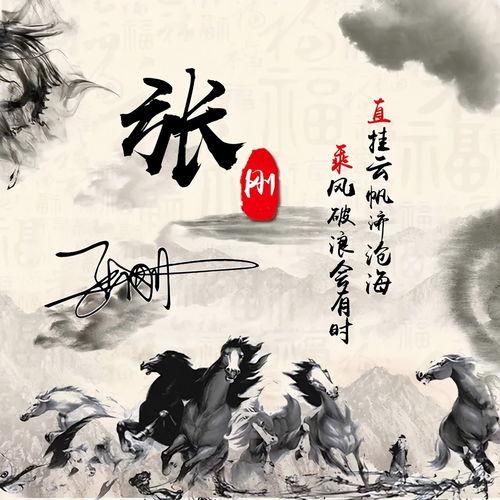 张
刚
直挂云帆济沧海
乘风破浪会有时